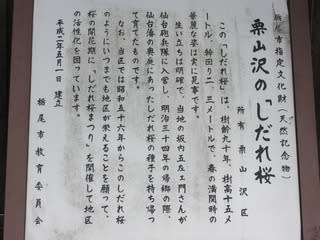 栃尾市指定文化財（天然記念物）
栗山沢の「しだれ桜」
所有 栗山沢区
この「しだれ桜」は、樹齢九十年、樹高十五メ
ートル、幹回り二、三メートルで、春の満開時の
華麗な姿は実に見事です。
生い立ちは明確で、当地の坂内五左ェ門さんが
仙台砲兵隊に入営し、明治三十四年の帰郷の際、
仙台藩の奥庭にあったしだれ桜の種子を持ち帰っ
て育てたものです。
なお、当区では昭和五十六年からこのしだれ桜
のようにいつまでも地区が栄えることを願って、
桜の開花期に「しだれ桜まつり」を開催して地区
の活性化を図っています。
平成二年五月一日 建立
栃尾市教育委員会